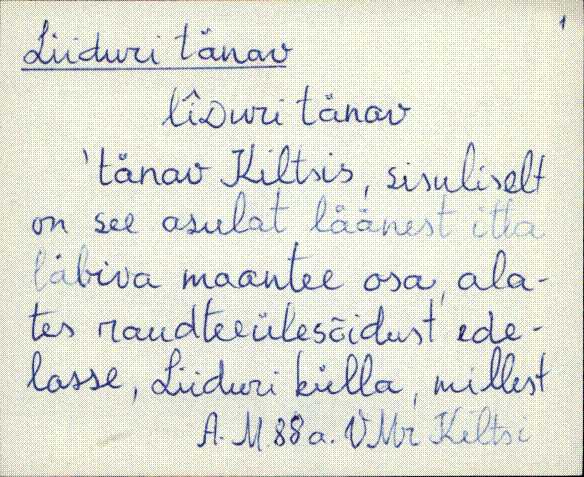 1
Liiduri tänav
lîDuri tänav
'tänav Kiltsis, sisuliselt
on see asulat läänest itta
läbiva maantee osa, ala-
tes raudteeülesõidust ede-
lasse, Liiduri külla, millest
A. M 88a. VMr Kiltsi